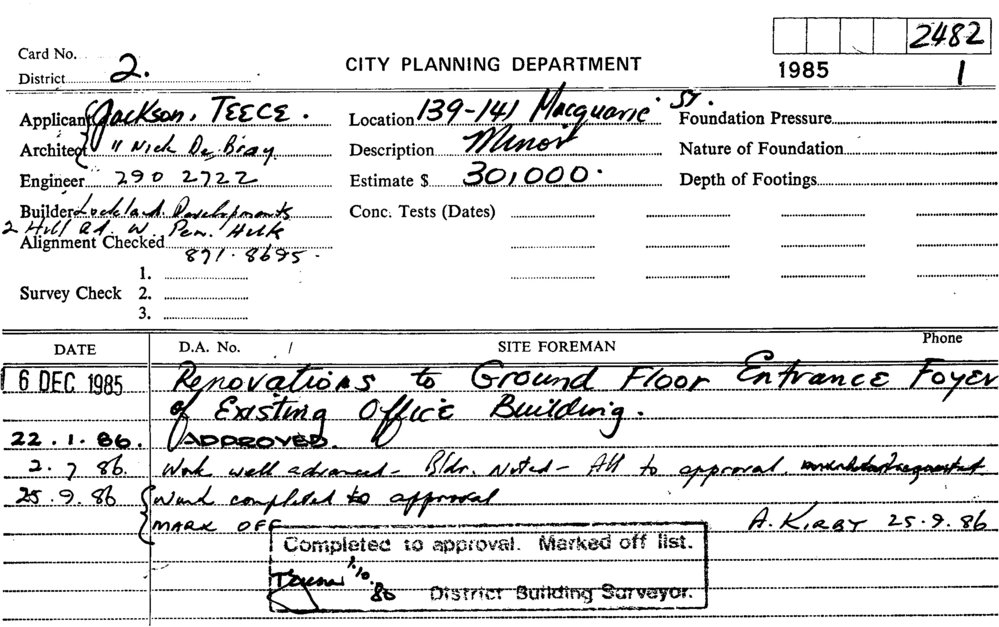 2482
Card No.
District 2.
CITY PLANNING DEPARTMENT
1985 1
Applicant Jackson. TEECE.
Location 139-141 Macquarie ST.
Foundation Pressure
Architect " Nick De Bray
Description Minor
Nature of Foundation
Engineer 290 2722
Estimate $ 301000.
Depth of Footings
Builder Developments
Conc. Tests (Dates)
2 Hill Rd. W. Pen. Hills
Alignment Checked
871.8695.
1.
Survey Check 2.
3.
DATE D.A. No. / SITE FOREMAN Phone
16 DEC 1985 Renovations to Ground Floor Entrance Foyer
of Existing Office Building.
22.1.86. APPROVED.
2.7 86. Work well advanced - Bldr. Noted - All to approval.
25.9.86 Work completed to approval
MARK OFF A. KIRBY 25.9.86
Completed to approval. Marked off list.
1.10.86 District Building Surveyor.